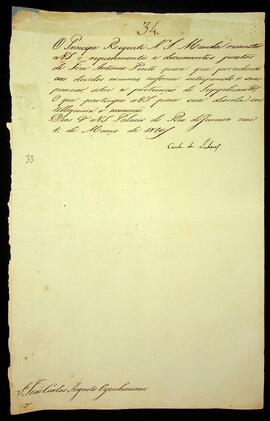 34.
O Principe Regente N. S. Manda remetter
a VS o requerimento e documentos juntos
de José Antonio Pinto para que procedendo
aos devidos exames informe interpondo o seu
parecer, sobre a pertenção do Supplicante,
O que participo a VS para sua devida in
telligencia e execução
Deos G.e a VS Palacio do Rio de Janeiro em
de Março de
33
Conde de
S.r João Carlos Augusto Oyenhausen